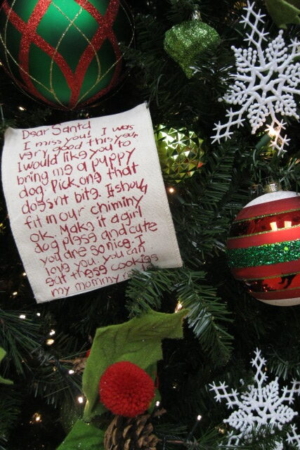 Dear Santa
I miss you! I was
very good this year
I would like you to
bring me a puppy
dog. Pick one that
dogsnt bite. It should
fit in our chiminy
ok. Make it a girl
dog please and cute
you are so nice. I
love you. you
eat these cookies
my mommy